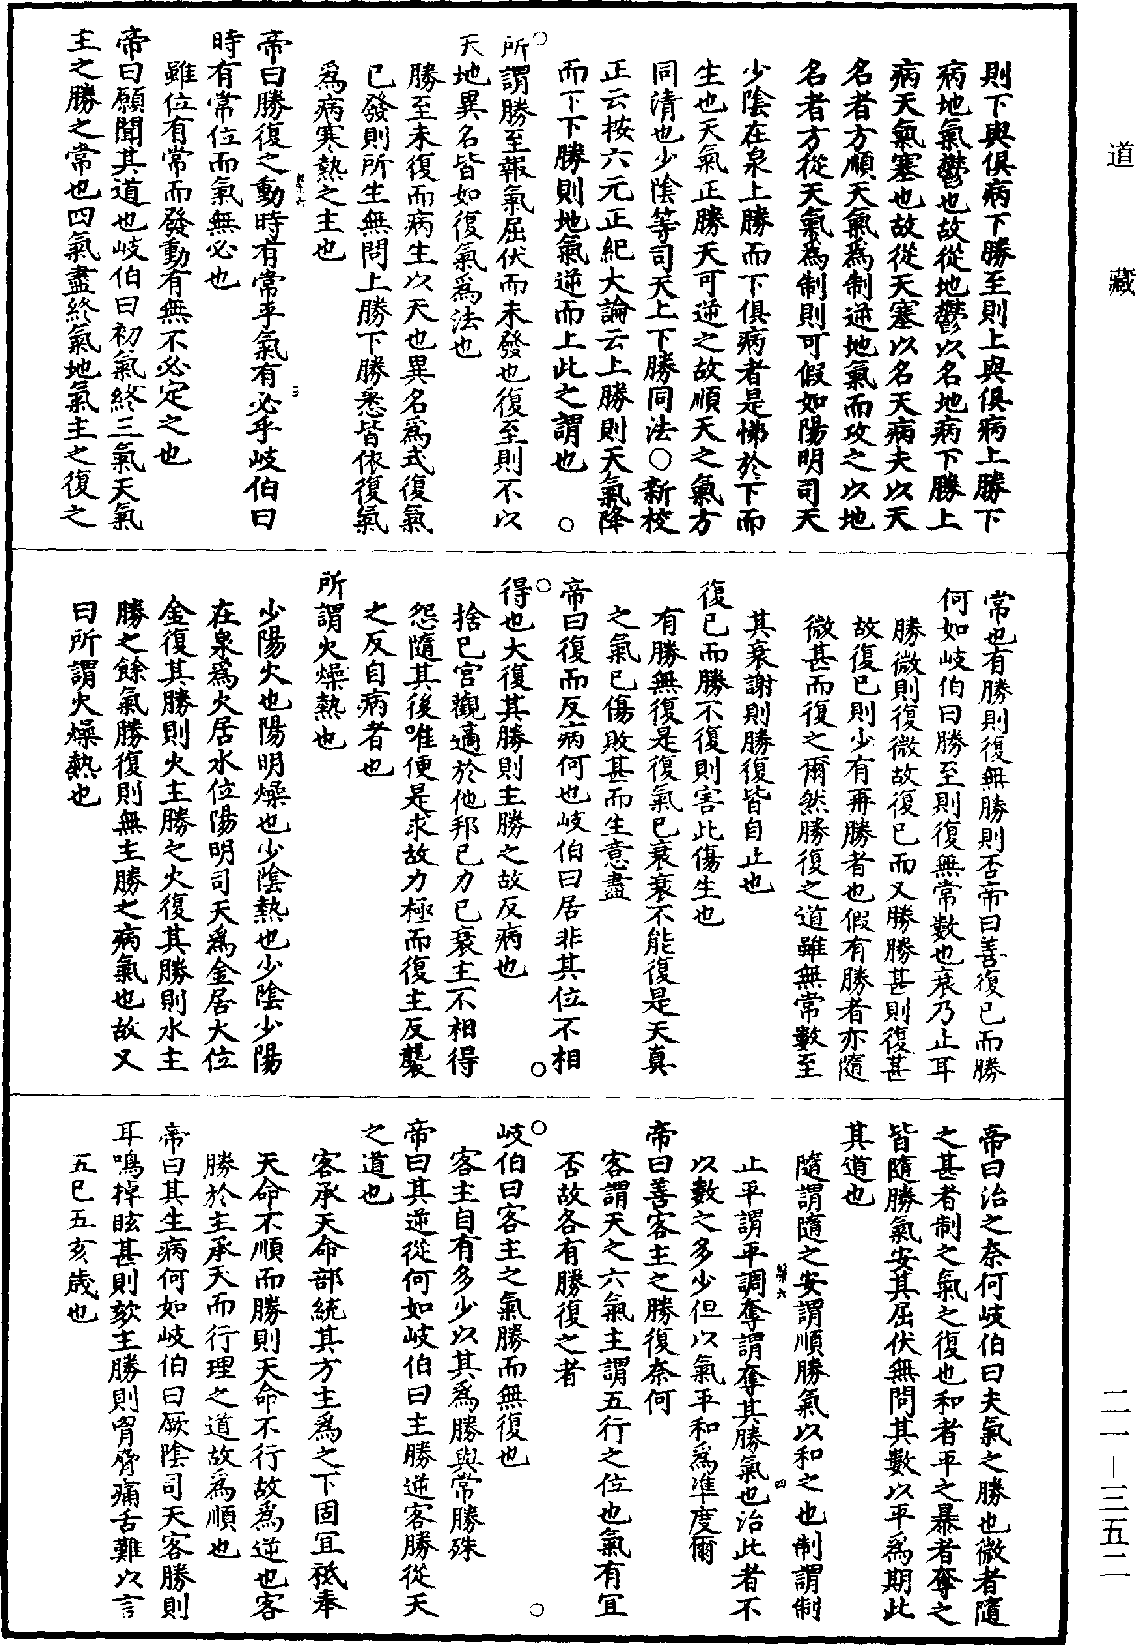 道藏
則下與俱病下勝至則上與俱病上勝下
病地氣鬱也故從地鬱以名地病下勝上
病天氣塞也故從天塞以名天病夫以天
名者方順天氣為制逆地氣而攻之以地
名者方從天氣為制則可假如陽明司天
少陰在泉上勝而下俱病者是怫於下而
生也天氣正勝天可逆之故順天之氣方
同清也少陰等司天上下勝同法○新校
正云按六元正紀大論云上勝則天氣降
而下下勝則地氣逆而上此之謂也○
○所謂勝至報氣屈伏而未發也復至則不以
天地異名皆如復氣為法也
勝至未復而病生以天也異名為式復氣
已發則所生無問上勝下勝悉皆依復氣
為病寒熱之主也
帝曰勝復之動時有常乎氣有必乎岐伯曰
時有常位而氣無必也
雖位有常而發動有無不必定之也
帝曰願聞其道也岐伯曰初氣終三氣天氣
主之勝之常也四氣盡終氣地氣主之復之
常也有勝則復無勝則否帝曰善復已而勝
何如岐伯曰勝至則復無常數也衰乃止耳
勝微則復微故復已而又勝勝甚則復甚
故復已則少有再勝者也假有勝者亦隨
微甚而復之爾然勝復之道雖無常數至
其衰謝則勝復皆自止也
復已而勝不復則害此傷生也
有勝無復是復氣已衰衰不能復是天真
之氣已傷敗甚而生意盡
帝曰復而反病何也岐伯曰居非其位不相
○得也大復其勝則主勝之故反病也○
捨己宮觀適於他邦己力已衰主不相得
怨隨其後唯便是求故力極而復主反襲
之反自病者也
所謂火燥熱也
少陽火也陽明燥也少陰熱也少陰少陽
在泉為火居水位陽明司天為金居火位
金復其勝則火主勝之火復其勝則水主
勝之餘氣勝復則無主勝之病氣也故又
曰所謂火燥熱也
帝曰治之奈何岐伯曰夫氣之勝也微者隨
之甚者制之氣之復也和者平之暴者奪之
皆隨勝氣安其屈伏無問其數以平為期此
其道也
隨謂隨之安謂順勝氣以和之也制謂制
止平謂平調奪謂奪其勝氣也治此者不
以數之多少但以氣平和為準度爾
帝曰善客主之勝復奈何
客謂天之六氣主謂五行之位也氣有宜
否故各有勝復之者
○岐伯曰客主之氣勝而無復也○
客主自有多少以其為勝與常勝殊
帝曰其逆從何如岐伯曰主勝逆客勝從天
之道也
客承天命部統其方主為之下固宜祇奉
天命不順而勝則天命不行故為逆也客
勝於主承天而行理之道故為順也
帝曰其生病何如岐伯曰厥陰司天客勝則
耳鳴掉眩甚則欬主勝則胷脅痛舌難以言
五巳五亥歲也
二一—三五二